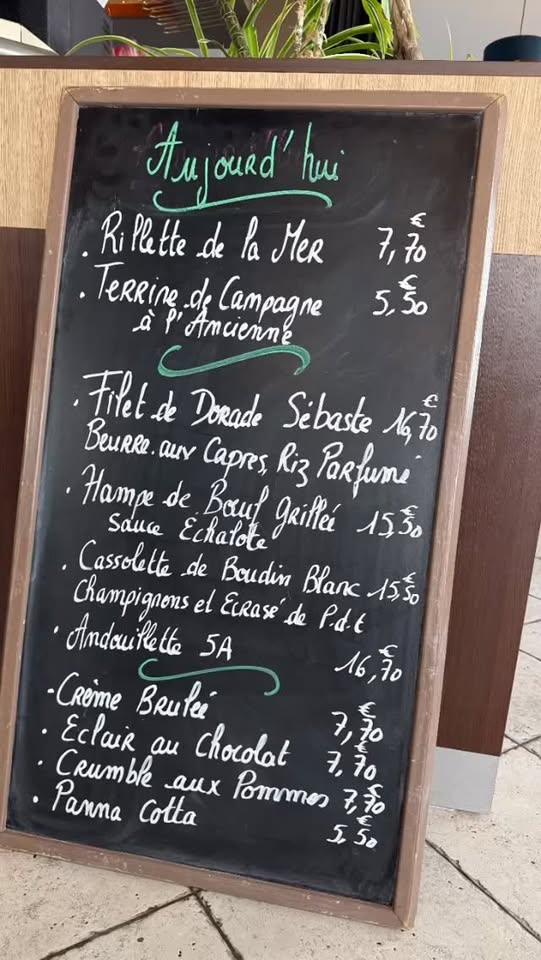 Aujourd'hui
. Rillette de la Mer 7,70 €
. Terrine de Campagne 5,50 €
à l'Ancienne
. Filet de Dorade Sébaste 16,70 €
Beurre aux Capres, Riz Parfumé
. Hampe de Bœuf Grillée 15,50 €
Sauce Echalote
. Cassolette de Boudin Blanc 15,50 €
Champignons et Ecrasé de P.d.t
. Andouillette 5A 16,70 €
. Crème Brulée 7,70 €
. Eclair au Chocolat 7,70 €
. Crumble aux Pommes 7,70 €
. Panna Cotta 5,50 €